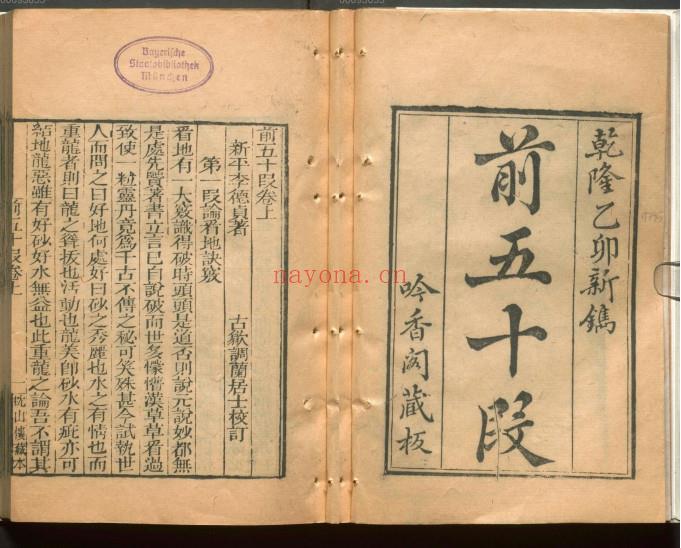 乾隆乙卯新鐫
前五十段
吟香阁藏板
前五十段卷上
新平李德貞著
古歙調蘭居士校訂
第一段論看地訣竅
看地有一大竅識得破時頭頭是道否則說元說妙都無
是處先賢著書立言已自說破而世多懞懂漢草草看過
致使一粒靈丹竟爲千古不傳之秘可笑殊甚今試執世
人而問之曰好地何處好曰砂之秀麗也水之有情也而
重龍者則曰龍之聳拔也活動也龍美卽砂水有疵亦可
結地龍惡雖有好砂好水無益也此重龍之論吾不謂其
前五十段卷上
一
山樓藏本
Bayerische
Staatsbibliothek
München
nayona.cn